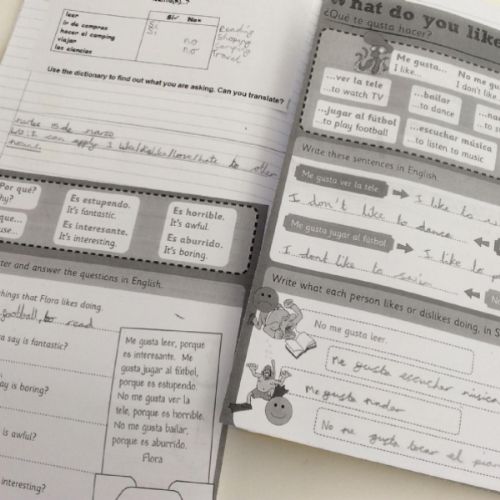 Sí/ No×
leer
ir de compras
hacer el camping
viajar
las ciencias
Sí
Sí
no
no
Reading
Shopping
Camping
Travel
Use the dictionary to find out what you are asking. Can you translate?
to other
Por qué?
hy?
que...
use...
Es estupendo.
It's fantastic.
Es interesante.
It's interesting.
Es horrible.
It's awful.
Es aburrido.
It's boring.
ter and answer the questions in English.
hings that Flora likes doing.
football, to read
a say is fantastic?
ay is boring?
is awful?
interesting?
Me gusta leer, porque
es interesante. Me
gusta jugar al fútbol,
porque es estupendo.
No me gusta ver la
tele, porque es horrible.
No me gusta bailar,
porque es aburrido.
Flora
What do you like
¿Qué te gusta hacer?
Me gusta...
I like...
No me gu
I don't like
...ver la tele
...to watch TV
...bailar
...to dance
...na
...to
...jugar al fútbol
...to play football
...escuchar música
...to listen to music
Write these sentences in English.
Me gusta ver la tele.
I like to
I don't like to dance
Me gusta jugar al fútbol
I like to p
I dont like to
Write what each person likes or dislikes doing, in S
No me gusta leer.
Me gusta escuchar música
Me gusta nadar
No me gusta tocar el pia